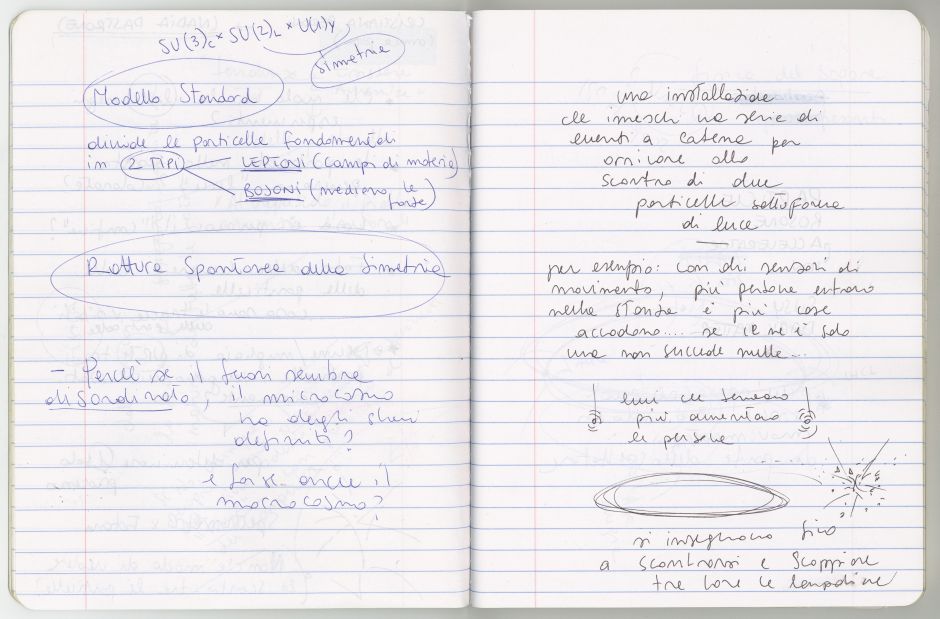 SU(3)c × SU(2)L × U(1)Y
Simetria
Modello Standard
divide le particelle fondamentali
in 2 TIPI LEPTONI (campi di materia)
BOSONI (mediano le
forze)
Rottura Spontanea della Simetria
- Perchè se il fuori sembra
disordinato, il microcosmo
ha degli
definiti?
e forse anche il
macrocosmo?
una installazione
che inneschi na serie di
eventi a catena per
arrivare allo
scontro di due
particelle sottoforma
di luce
per esempio: con dei sensori di
movimento, più persone entrano
nella stanza e più cose
accadono.... se ce ne è solo
una non succede nulla...
luci che
più aumentano
le persone
si inseguono fino
a scontrarsi e scoppiare
tra loro le lampadine